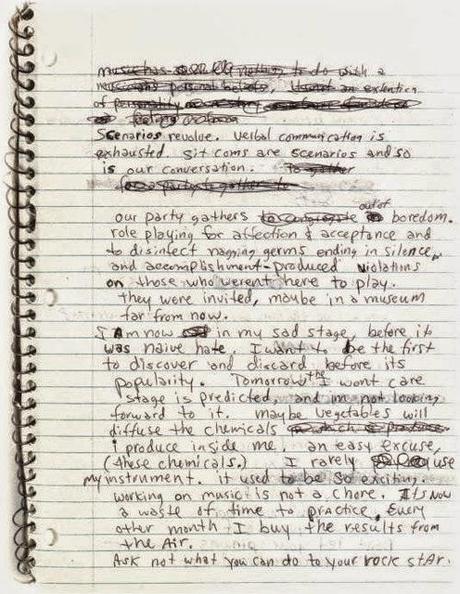 music has nothing to do with a
personal beliefs, an extention
of personality
Scenarios revolve. verbal communication is
exhausted. sit coms are scenarios and so
is our conversation. to gather
for a party to gather to
our party gathers out of boredom.
role playing for affection & acceptance and
to disinfect nagging germs ending in silence,
and accomplishment-produced violations
on those who werent here to play.
they were invited, maybe in a museum
far from now.
I Am now in my sad stage, before it
was naive hate. I want to be the first
to discover and discard before its
popularity. Tomorrow the I wont care
stage is predicted, and im not looking
forward to it. maybe vegetables will
diffuse the chemicals which produce
i produce inside me, an easy excuse,
(these chemicals.) I rarely use
my instrument. it used to be so exciting.
working on music is not a chore. Its now
a waste of time to practice. Every
other month I buy the results from
the Air.
Ask not what you can do to your rock stAr.